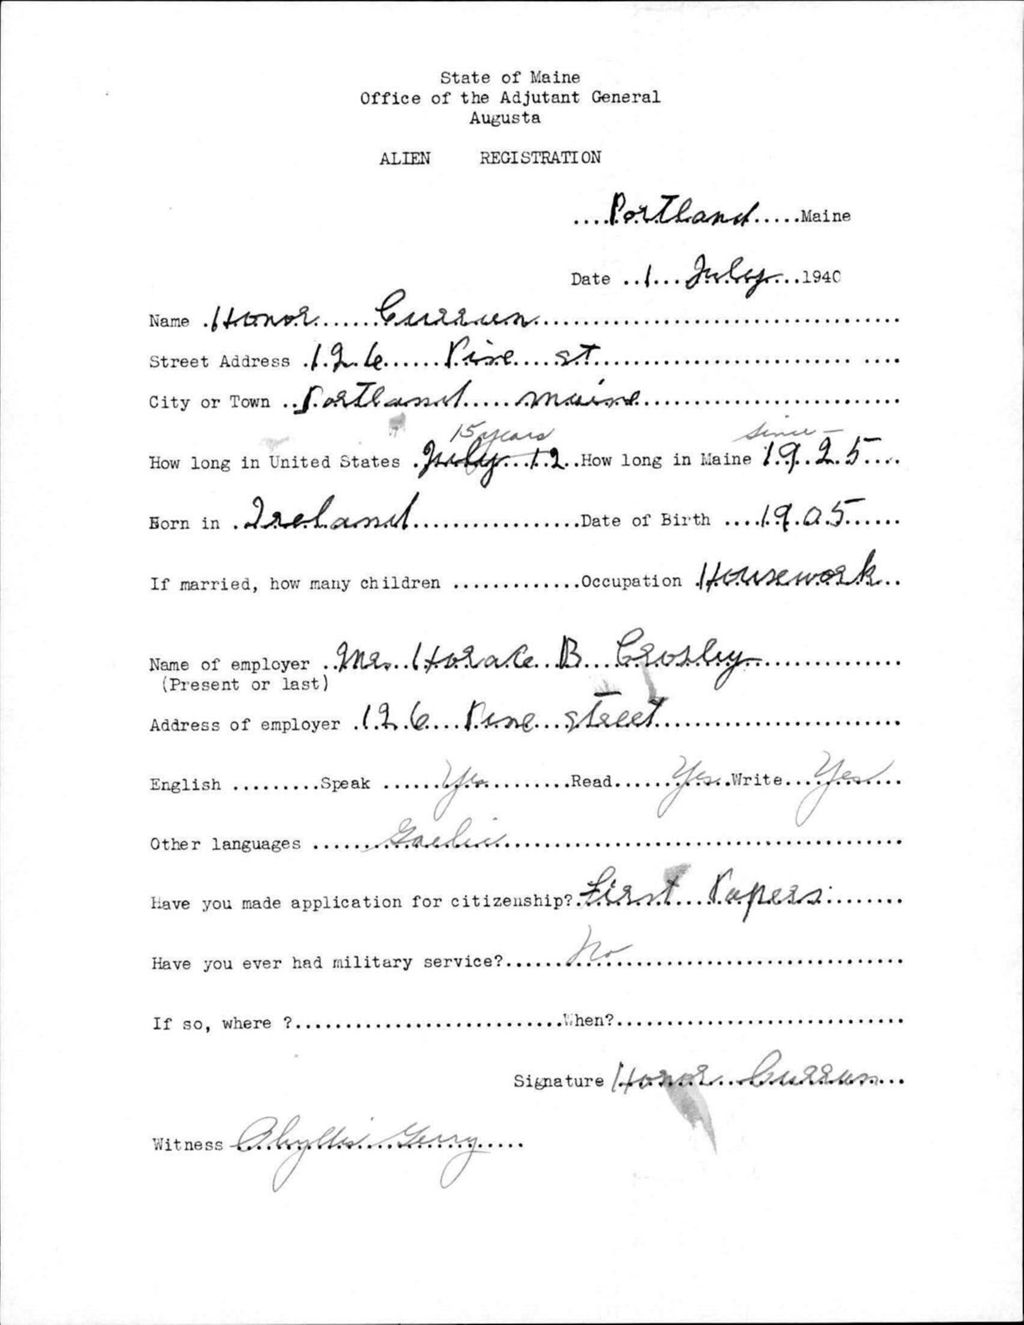 State of Maine
Office of the Adjutant General
Augusta
ALIEN REGISTRATION
....Portland.....Maine
Date ..1...July...1940
Name .Honor......Curran.....................................
Street Address .126......Pine....st.............................. ....
City or Town ..Portland.....Maine..........................
15 years since -
How long in United States .July...12..How long in Maine 1925....
Born in .Ireland.................Date of Birth ....1905......
If married, how many children .............Occupation .Housework..
Name of employer ..Mrs..Horace..B...Crosley...............
(Present or last)
Address of employer .126...Pine...street........................
English .........Speak ......Yes.........Read......Yes..Write...Yes....
Other languages .......Gaelic........................................
Have you made application for citizenship?.First...Papers........
Have you ever had military service?......No............................
If so, where ?...........................When?.............................
Signature Honor...Curran...
Witness Phyllis Gerry.....